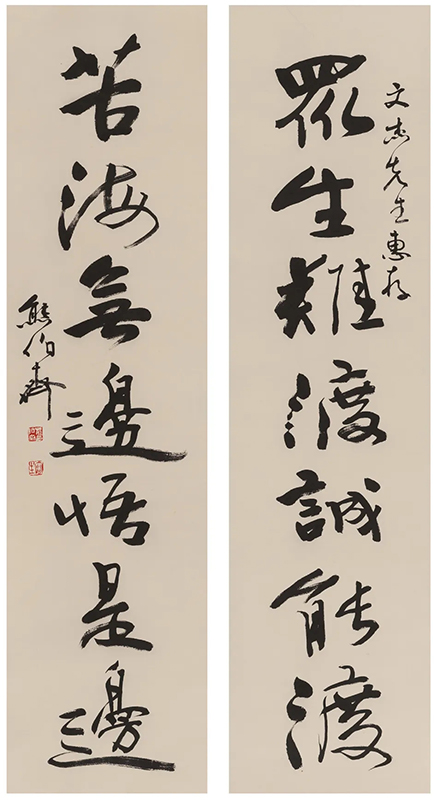 文杰先生惠存
眾生難渡誠能渡
苦海無邊悟是邊
熊伯齊